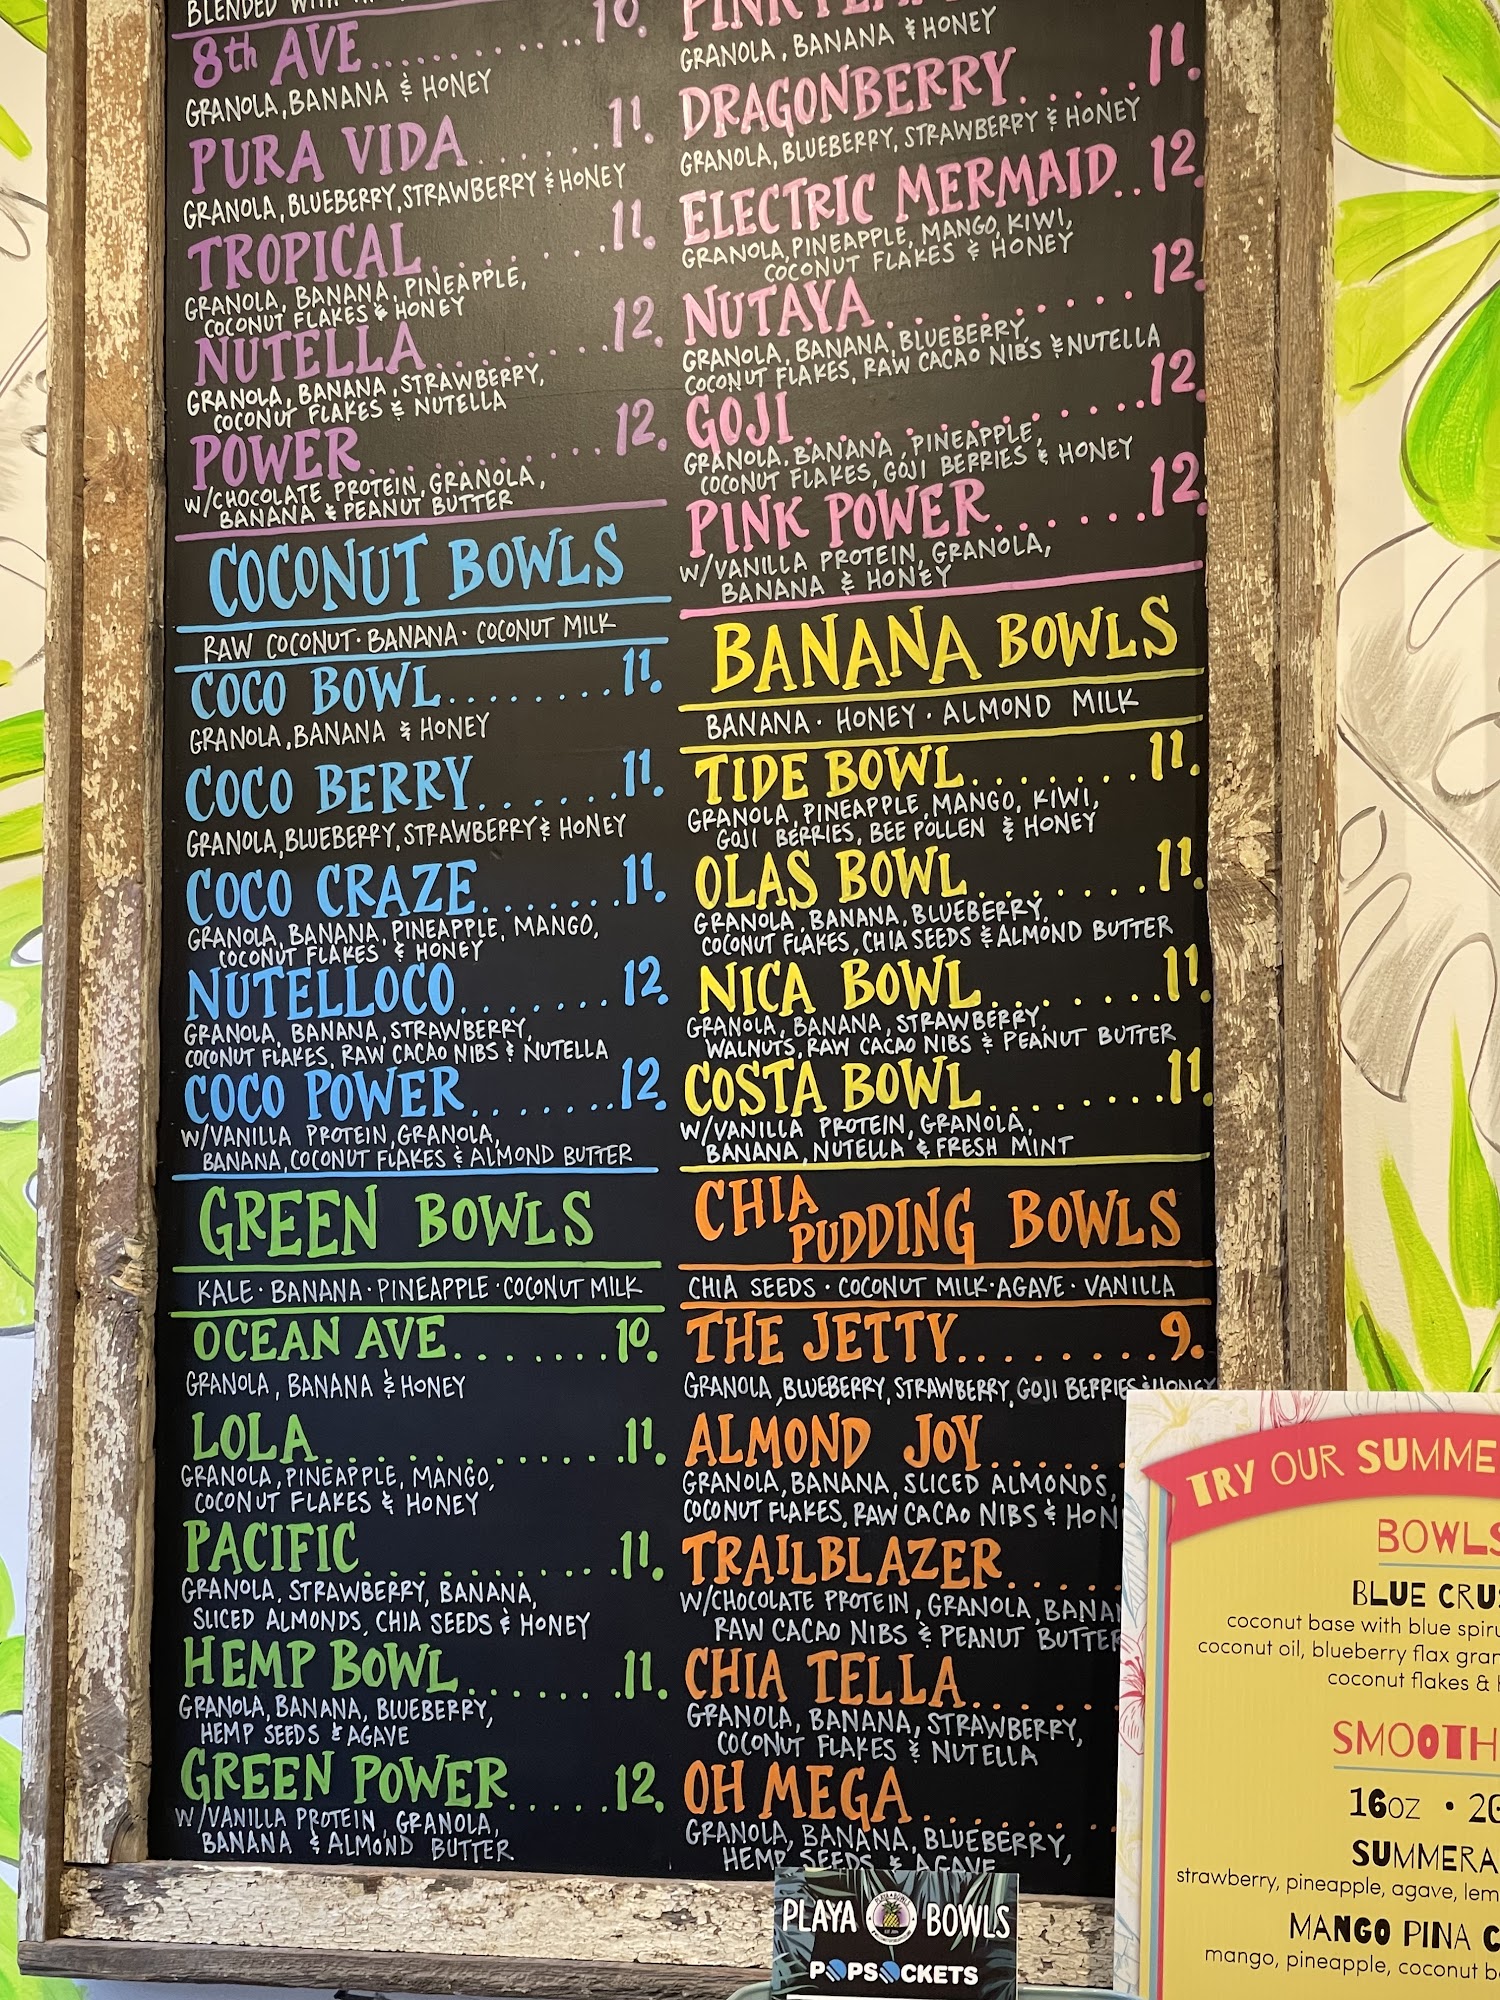 BLENDED
8th AVE............10.
GRANOLA, BANANA & HONEY
PURA VIDA.......11.
GRANOLA, BLUEBERRY, STRAWBERRY & HONEY
TROPICAL........11.
GRANOLA, BANANA, PINEAPPLE,
COCONUT FLAKES & HONEY
NUTELLA........12.
GRANOLA, BANANA, STRAWBERRY,
COCONUT FLAKES & NUTELLA
POWER............12.
W/CHOCOLATE PROTEIN, GRANOLA,
BANANA & PEANUT BUTTER
COCONUT BOWLS
RAW COCONUT · BANANA · COCONUT MILK
COCO BOWL........11.
GRANOLA, BANANA & HONEY
COCO BERRY......11.
GRANOLA, BLUEBERRY, STRAWBERRY & HONEY
COCO CRAZE......11.
GRANOLA, BANANA, PINEAPPLE, MANGO,
COCONUT FLAKES & HONEY
NUTELLOCO.......12.
GRANOLA, BANANA, STRAWBERRY,
COCONUT FLAKES, RAW CACAO NIBS & NUTELLA
COCO POWER.......12.
W/VANILLA PROTEIN, GRANOLA,
BANANA, COCONUT FLAKES & ALMOND BUTTER
GREEN BOWLS
KALE · BANANA · PINEAPPLE · COCONUT MILK
OCEAN AVE.......10.
GRANOLA, BANANA & HONEY
LOLA..............11.
GRANOLA, PINEAPPLE, MANGO,
COCONUT FLAKES & HONEY
PACIFIC............11.
GRANOLA, STRAWBERRY, BANANA,
SLICED ALMONDS, CHIA SEEDS & HONEY
HEMP BOWL.......11.
GRANOLA, BANANA, BLUEBERRY,
HEMP SEEDS & AGAVE
GREEN POWER.....12.
W/VANILLA PROTEIN, GRANOLA,
BANANA & ALMOND BUTTER
GRANOLA, BANANA & HONEY
DRAGONBERRY.....11.
GRANOLA, BLUEBERRY, STRAWBERRY & HONEY
ELECTRIC MERMAID..12.
GRANOLA, PINEAPPLE, MANGO, KIWI,
COCONUT FLAKES & HONEY
NUTAYA..........12.
GRANOLA, BANANA, BLUEBERRY,
COCONUT FLAKES, RAW CACAO NIBS & NUTELLA
GOJI..............12.
GRANOLA, BANANA, PINEAPPLE,
COCONUT FLAKES, GOJI BERRIES & HONEY
PINK POWER......12.
W/VANILLA PROTEIN, GRANOLA,
BANANA & HONEY
BANANA BOWLS
BANANA · HONEY · ALMOND MILK
TIDE BOWL.......11.
GRANOLA, PINEAPPLE, MANGO, KIWI,
GOJI BERRIES, BEE POLLEN & HONEY
OLAS BOWL.......11.
GRANOLA, BANANA, BLUEBERRY,
COCONUT FLAKES, CHIA SEEDS & ALMOND BUTTER
NICA BOWL.......11.
GRANOLA, BANANA, STRAWBERRY,
WALNUTS, RAW CACAO NIBS & PEANUT BUTTER
COSTA BOWL.......11.
W/VANILLA PROTEIN, GRANOLA,
BANANA, NUTELLA & FRESH MINT
CHIA PUDDING BOWLS
CHIA SEEDS · COCONUT MILK · AGAVE · VANILLA
THE JETTY........9.
GRANOLA, BLUEBERRY, STRAWBERRY, GOJI BERRIES & HONEY
ALMOND JOY.....
GRANOLA, BANANA, SLICED ALMONDS,
COCONUT FLAKES, RAW CACAO NIBS & HON
TRAILBLAZER....
W/CHOCOLATE PROTEIN, GRANOLA, BANAN
RAW CACAO NIBS & PEANUT BUTTER
CHIA TELLA.....
GRANOLA, BANANA, STRAWBERRY,
COCONUT FLAKES & NUTELLA
OH MEGA.......
GRANOLA, BANANA, BLUEBERRY,
HEMP SEEDS & AGAVE
PLAYA BOWLS
POPSOCKETS
TRY OUR SUMME
BOWLS
BLUE CRU
coconut base with blue spiru
coconut oil, blueberry flax gran
coconut flakes &
SMOOTH
16oz · 20
SUMMERA
strawberry, pineapple, agave, lem
MANGO PINA C
mango, pineapple, coconut b